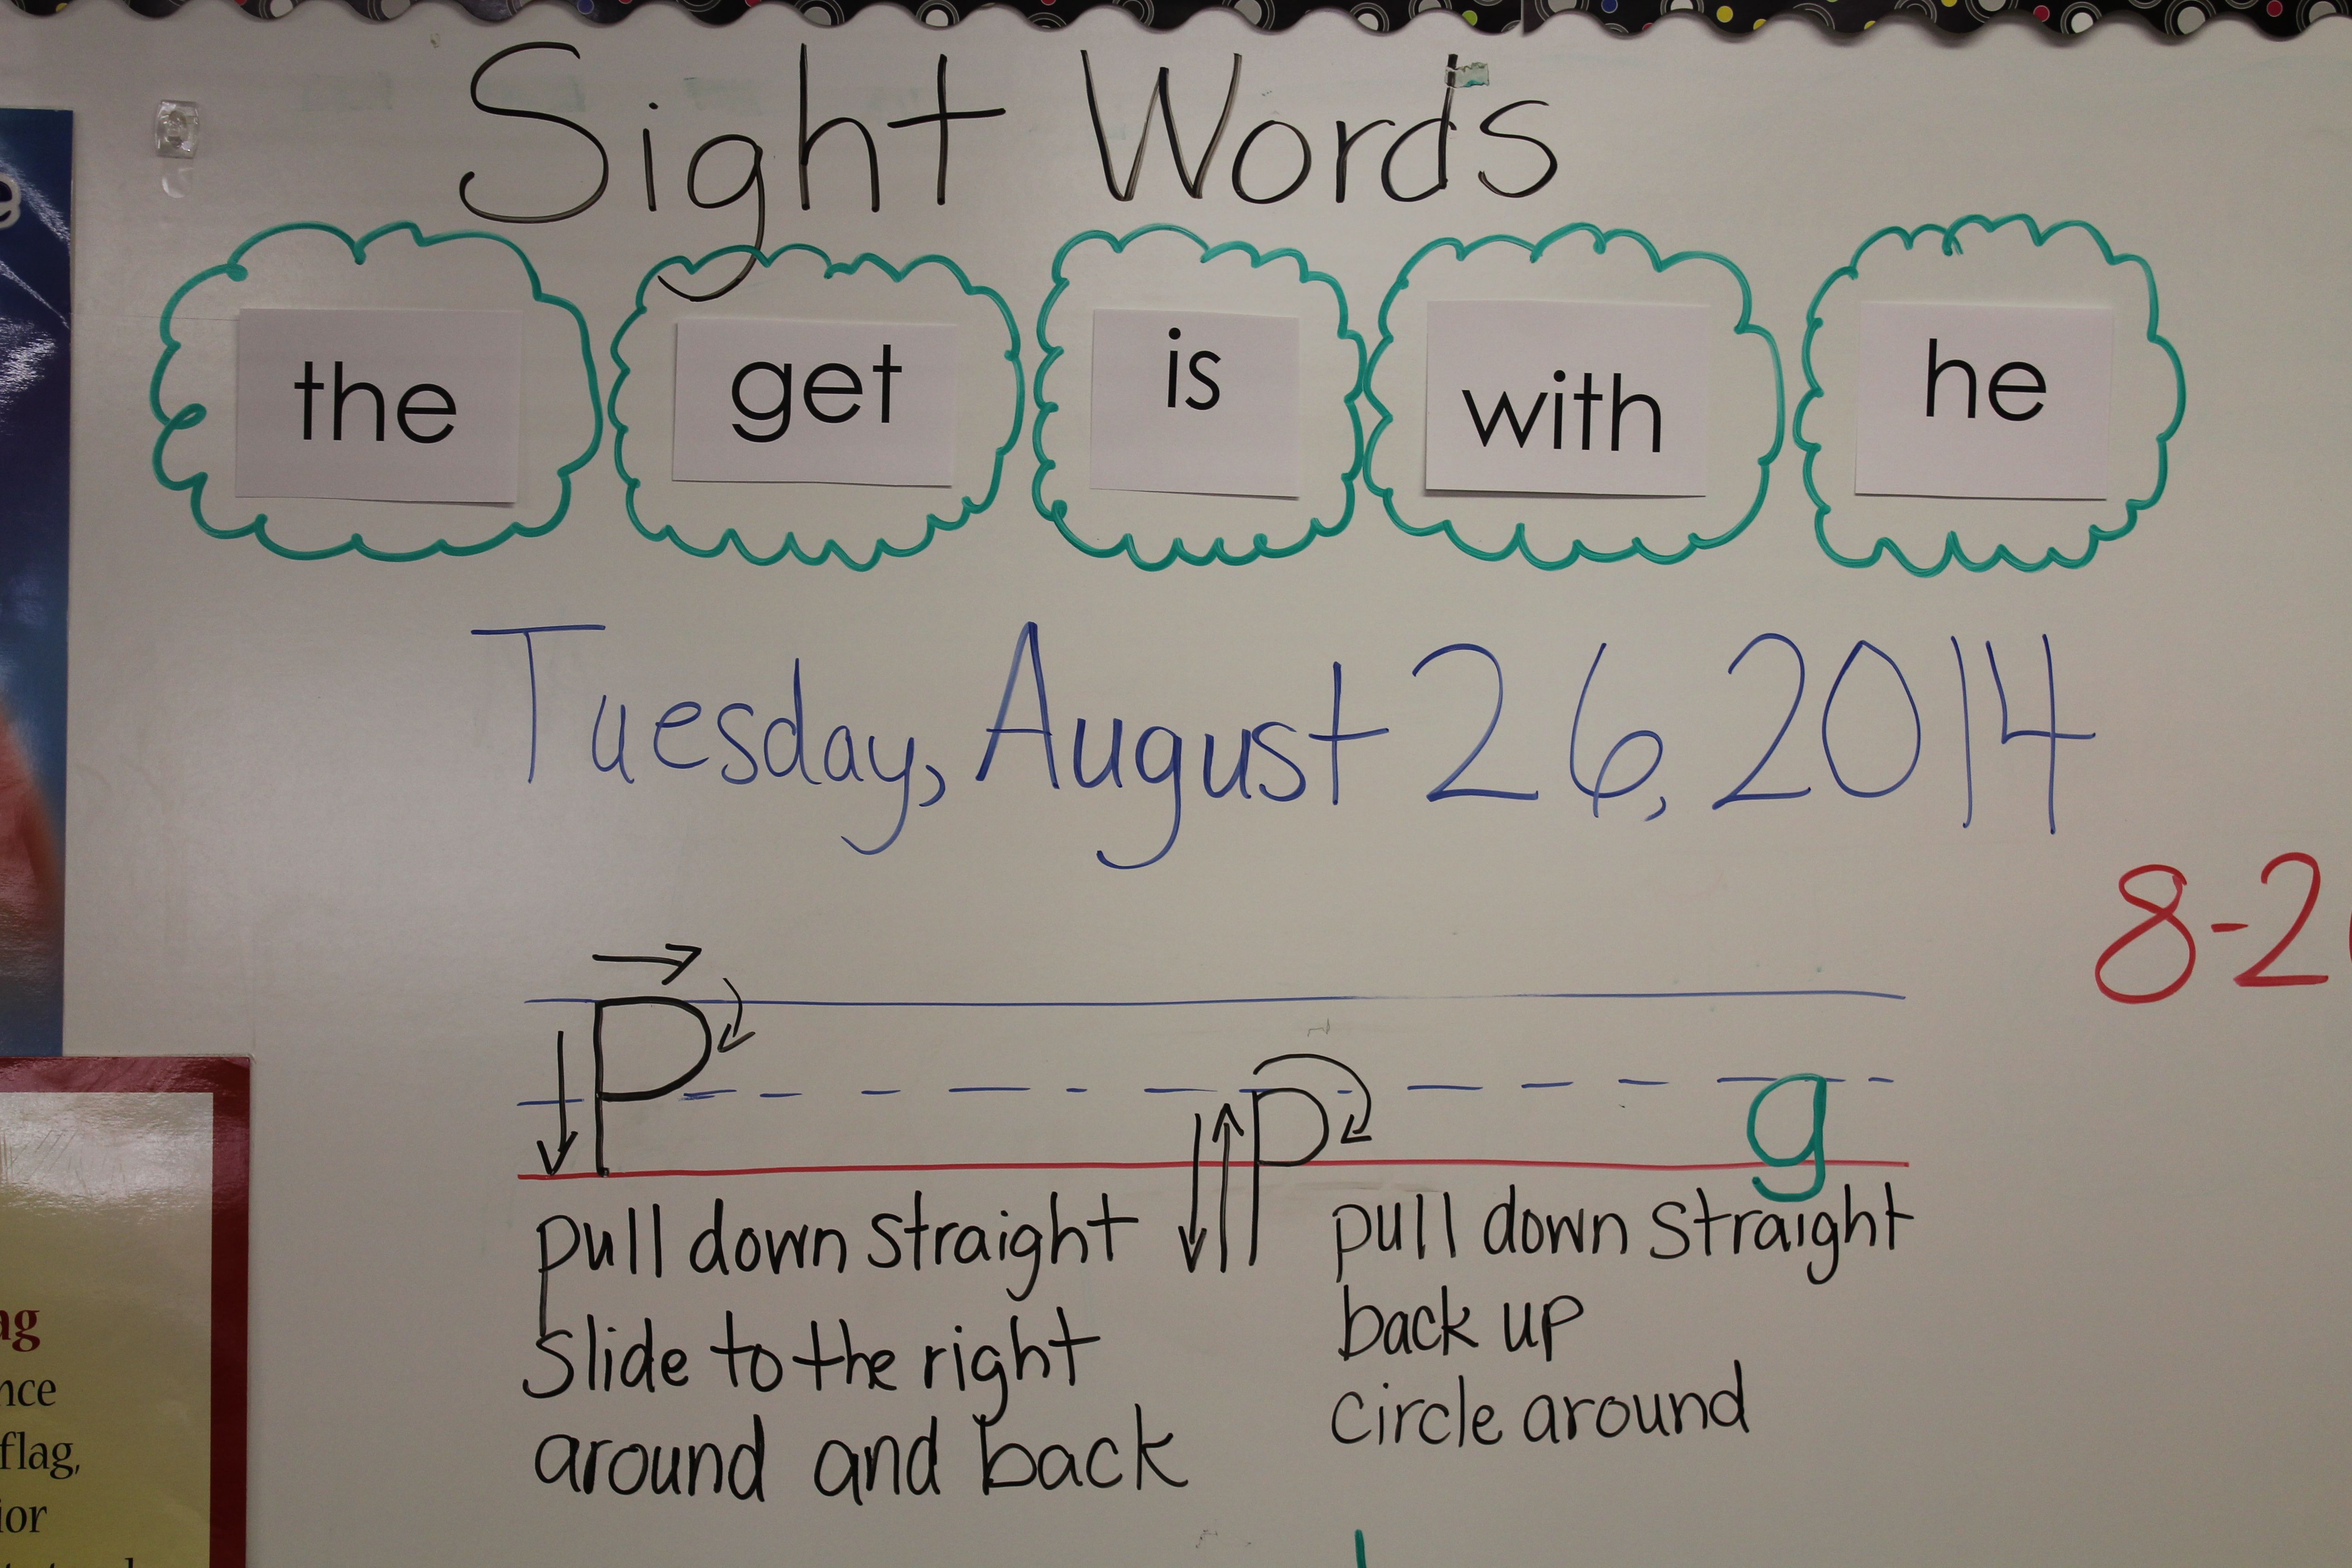 Sight Words
the get is with he
Tuesday, August 26, 2014
8-2
P p g
pull down straight
slide to the right
around and back
pull down straight
back up
circle around
flag,